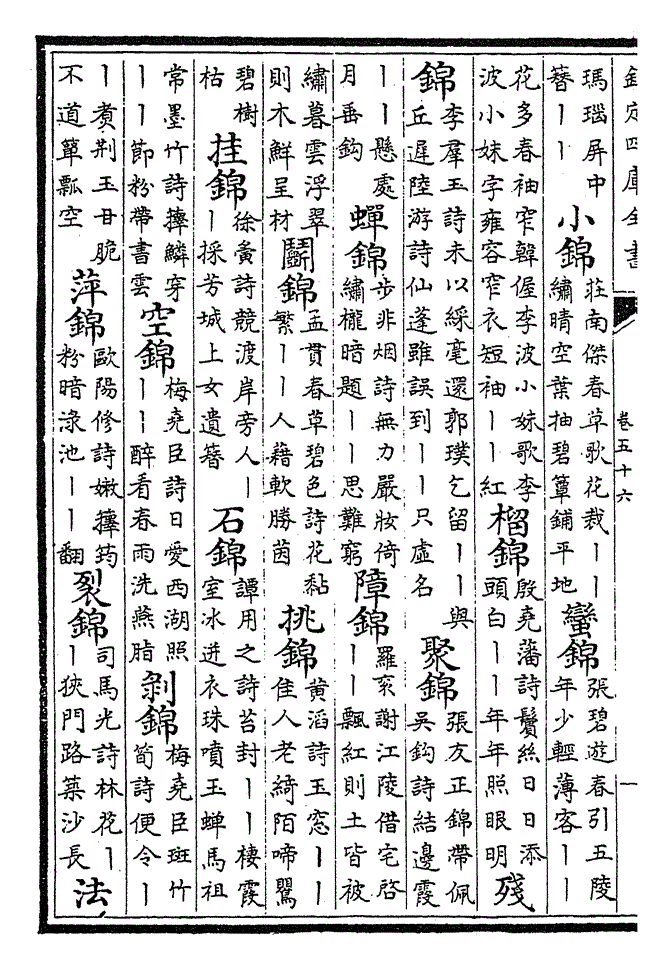 欽定四庫全書 卷五十六
瑪瑙屏中簪丨丨 小錦 莊南傑春草歌花裁丨丨繡晴空葉抽碧簟鋪平地 蠻錦 張碧遊春引五陵年少輕薄客丨丨
花多春袖窄韓偓李波小妹歌李波小妹字雍容窄衣短袖丨丨紅 榴錦 殷堯藩詩鬢絲日日添頭白丨丨年年照眼明 殘
錦 李羣玉詩未以綵毫還郭璞乞留丨丨與丘遲陸游詩仙蓬雖誤到丨丨只虛名 聚錦 張友正錦帶佩吳鈎詩結邊霞
丨丨懸處月垂鈎 蟬錦 步非烟詩無力嚴妝倚繡櫳暗題丨丨思難窮 障錦 羅衮謝江陵借宅啓丨丨飄紅則土皆被
繡暮雲浮翠則木鮮呈材 鬭錦 孟貫春草碧色詩花黏繁丨丨人藉軟勝茵 挑錦 黃滔詩玉窓丨丨佳人老綺陌啼鸎
碧樹枯 挂錦 徐夤詩競渡岸旁人丨丨採芳城上女遺簪 石錦 譚用之詩苔封丨丨棲霞室冰迸衣珠噴玉蟬馬祖
常墨竹詩籜鱗穿丨丨節粉帶書雲 空錦 梅堯臣詩日愛西湖照丨丨醉看春雨洗燕脂 剝錦 梅堯臣斑竹筍詩便令丨
丨煑荆玉甘脆不道簞瓢空 萍錦 歐陽修詩嫩籜筠粉暗渌池丨丨翻 裂錦 司馬光詩林花丨丨狹門路築沙長 法